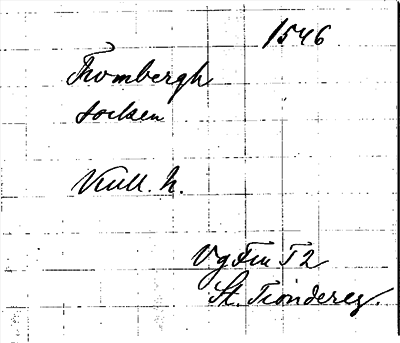 1546
Trombergh
socken
Vull. h.
Vg Fm T2
St. Tiondereg.